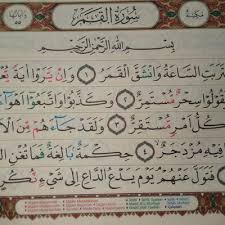 مكية سُورَةُ الْقَمَرِ
بِسْمِ اللهِ الرَّحْمٰنِ الرَّحِيْمِ
تَرَبَتِ السَّاعَةُ وَانْشَقَّ الْقَمَرُ ﴿١﴾ وَاِنْ يَّرَوْا اٰيَةً
قُوْلُوْا سِحْرٌ مُّسْتَمِرٌّ ﴿٢﴾ وَكَذَّبُوْا وَاتَّبَعُوْٓا اَهْوَآءَ
كُلُّ اَمْرٍ مُّسْتَقِرٌّ ﴿٣﴾ وَلَقَدْ جَآءَهُمْ مِّنَ الْاَ
فِيْهِ مُزْدَجَرٌ ﴿٤﴾ حِكْمَةٌ بَالِغَةٌ فَمَا تُغْنِ
فَتَوَلَّ عَنْهُمْ يَوْمَ يَدْعُ الدَّاعِ اِلٰى شَيْءٍ نُّكُرٍ